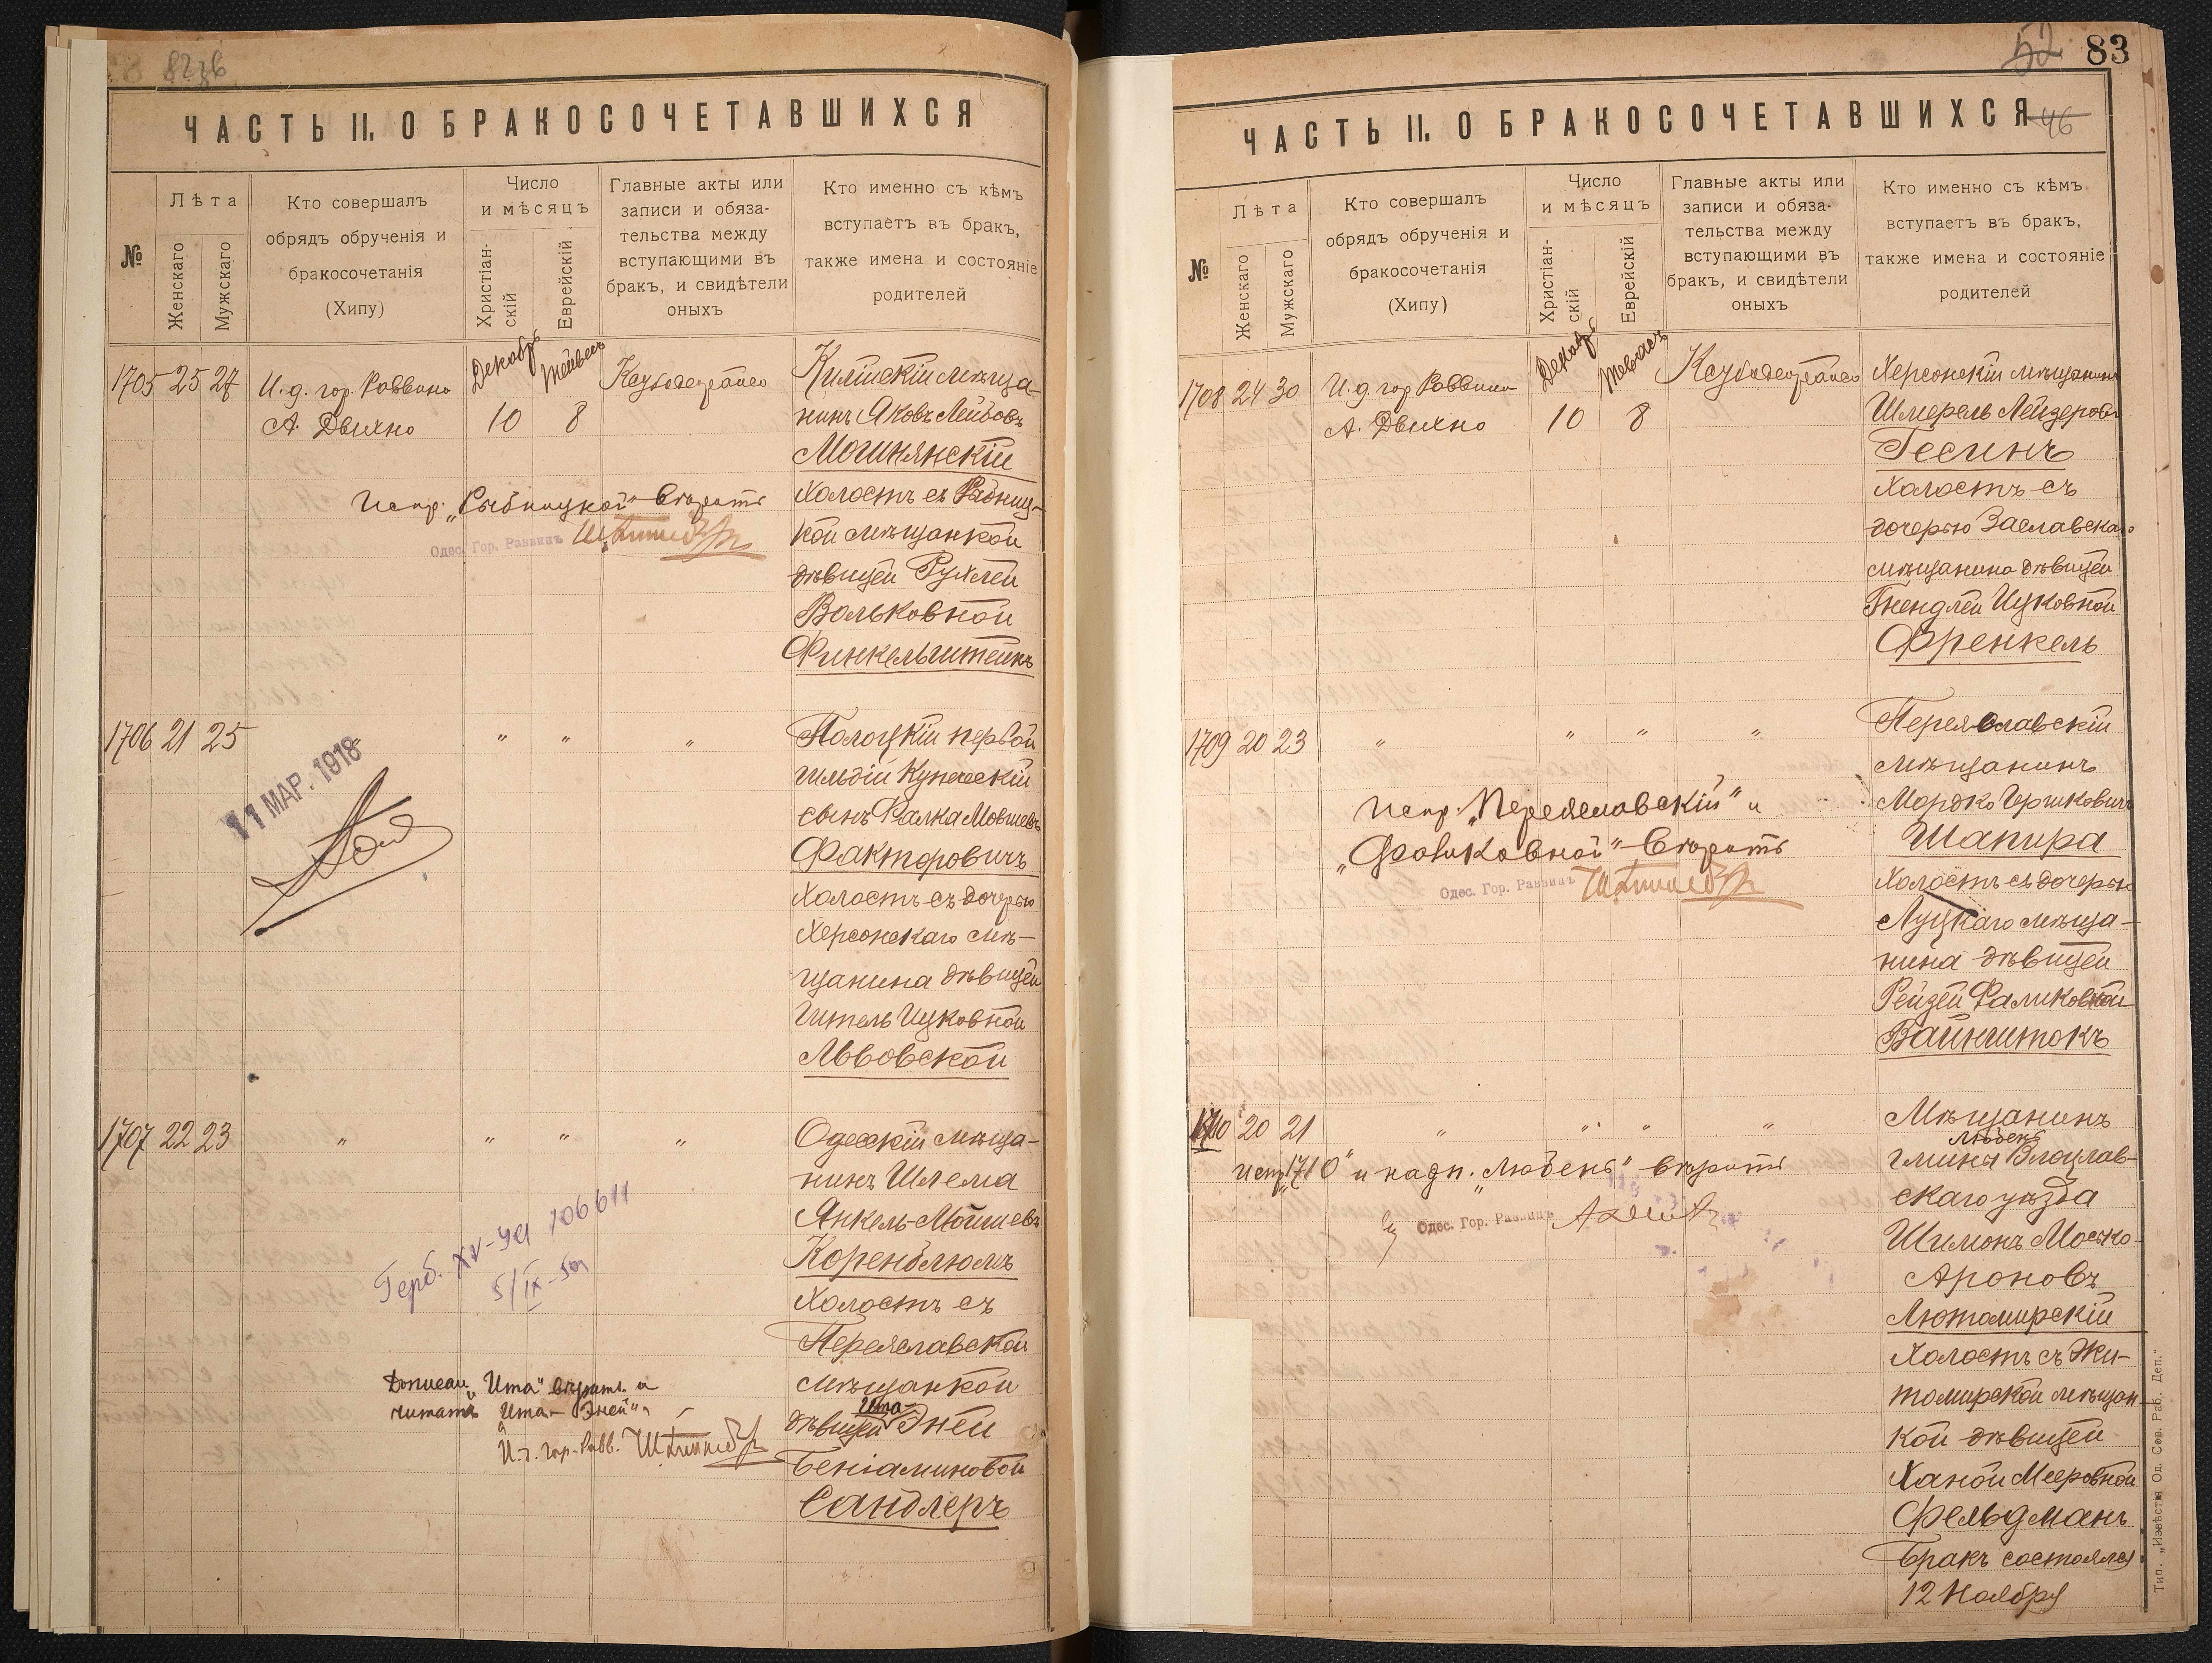 ЧАСТЬ II. О БРАКОСОЧЕТАВШИХСЯ
№
Лѣта
Женскаго
Мужскаго
Кто совершалъ
обрядъ обрученія и
бракосочетанія
(Хипу)
Число
и мѣсяцъ
Христіан-
скій
Еврейскій
Главные акты или
записи и обяза-
тельства между
вступающими въ
бракъ, и свидѣтели
оныхъ
Кто именно съ кѣмъ
вступаетъ въ бракъ,
также имена и состояніе
родителей
1705 25 27
И. д. гор. Раввина
А. Двихно
Декабрь
10
8
Килійскій мѣща-
нинъ Яковъ Лейбовъ
Могилянскій
холостъ съ Рыбниц-
кой мѣщанкой
дѣвицей Рухлей
Вольковной
Финкельштейнъ
Испр. „Рыбницкой" вѣрить
Одес. Гор. Раввинъ
1706 21 25
" " " "
11 МАР. 1918
Полоцкій первой
гильдіи купеческій
сынъ Фалка Мовшевъ
Факторовичъ
холостъ съ дочерью
Херсонскаго мѣ-
щанина дѣвицей
Гитель Ицковной
Львовской
1707 22 23
" " " "
Одесскій мѣща-
нинъ Шлема
Янкель-Мошевъ
Коренблюмъ
холостъ съ
Переяславской
мѣщанкой
Ита-
дѣвицей Эней
Беніаминовой
Сандлеръ
Герб. 106611
Дописан. „Ита" вѣрить и
читать „Ита-Эней"
И. д. гор. Равв.
52 83
ЧАСТЬ II. О БРАКОСОЧЕТАВШИХСЯ
46
№
Лѣта
Женскаго
Мужскаго
Кто совершалъ
обрядъ обрученія и
бракосочетанія
(Хипу)
Число
и мѣсяцъ
Христіан-
скій
Еврейскій
Главные акты или
записи и обяза-
тельства между
вступающими въ
бракъ, и свидѣтели
оныхъ
Кто именно съ кѣмъ
вступаетъ въ бракъ,
также имена и состояніе
родителей
1708 24 30
И. д. гор Раввина
А. Двихно
Декабрь
10
8
Херсонскій мѣщанинъ
Шмерель Лейзеровъ
Гесинъ
холостъ съ
дочерью Заславскаго
мѣщанина дѣвицей
Гнендлей Ицковной
Френкель
1709 20 23
" " " "
Переяславскій
мѣщанинъ
Мордко Гершковичъ
Шапира
холостъ съ дочерью
Луцкаго мѣща-
нина дѣвицей
Рейзей Фаликовной
Вайнштокъ
Испр. „Переяславскій" и
„Фаликовной" вѣрить
Одес. Гор. Раввинъ
1710 20 21
" " " "
Мѣщанинъ
Любень
гмины Влоцлав-
скаго уѣзда
Шимонъ Мосько-
Ароновъ
Лютомирскій
холостъ съ Жи-
томирской мѣщан-
кой дѣвицей
Ханой Мееровной
Фельдманъ
Бракъ состоялся
12 Ноября
испр. „1710" и надп. „Любень" вѣрить
Одес. Гор. Раввинъ
Тип. „Извѣстія Од. Сов. Раб. Деп."